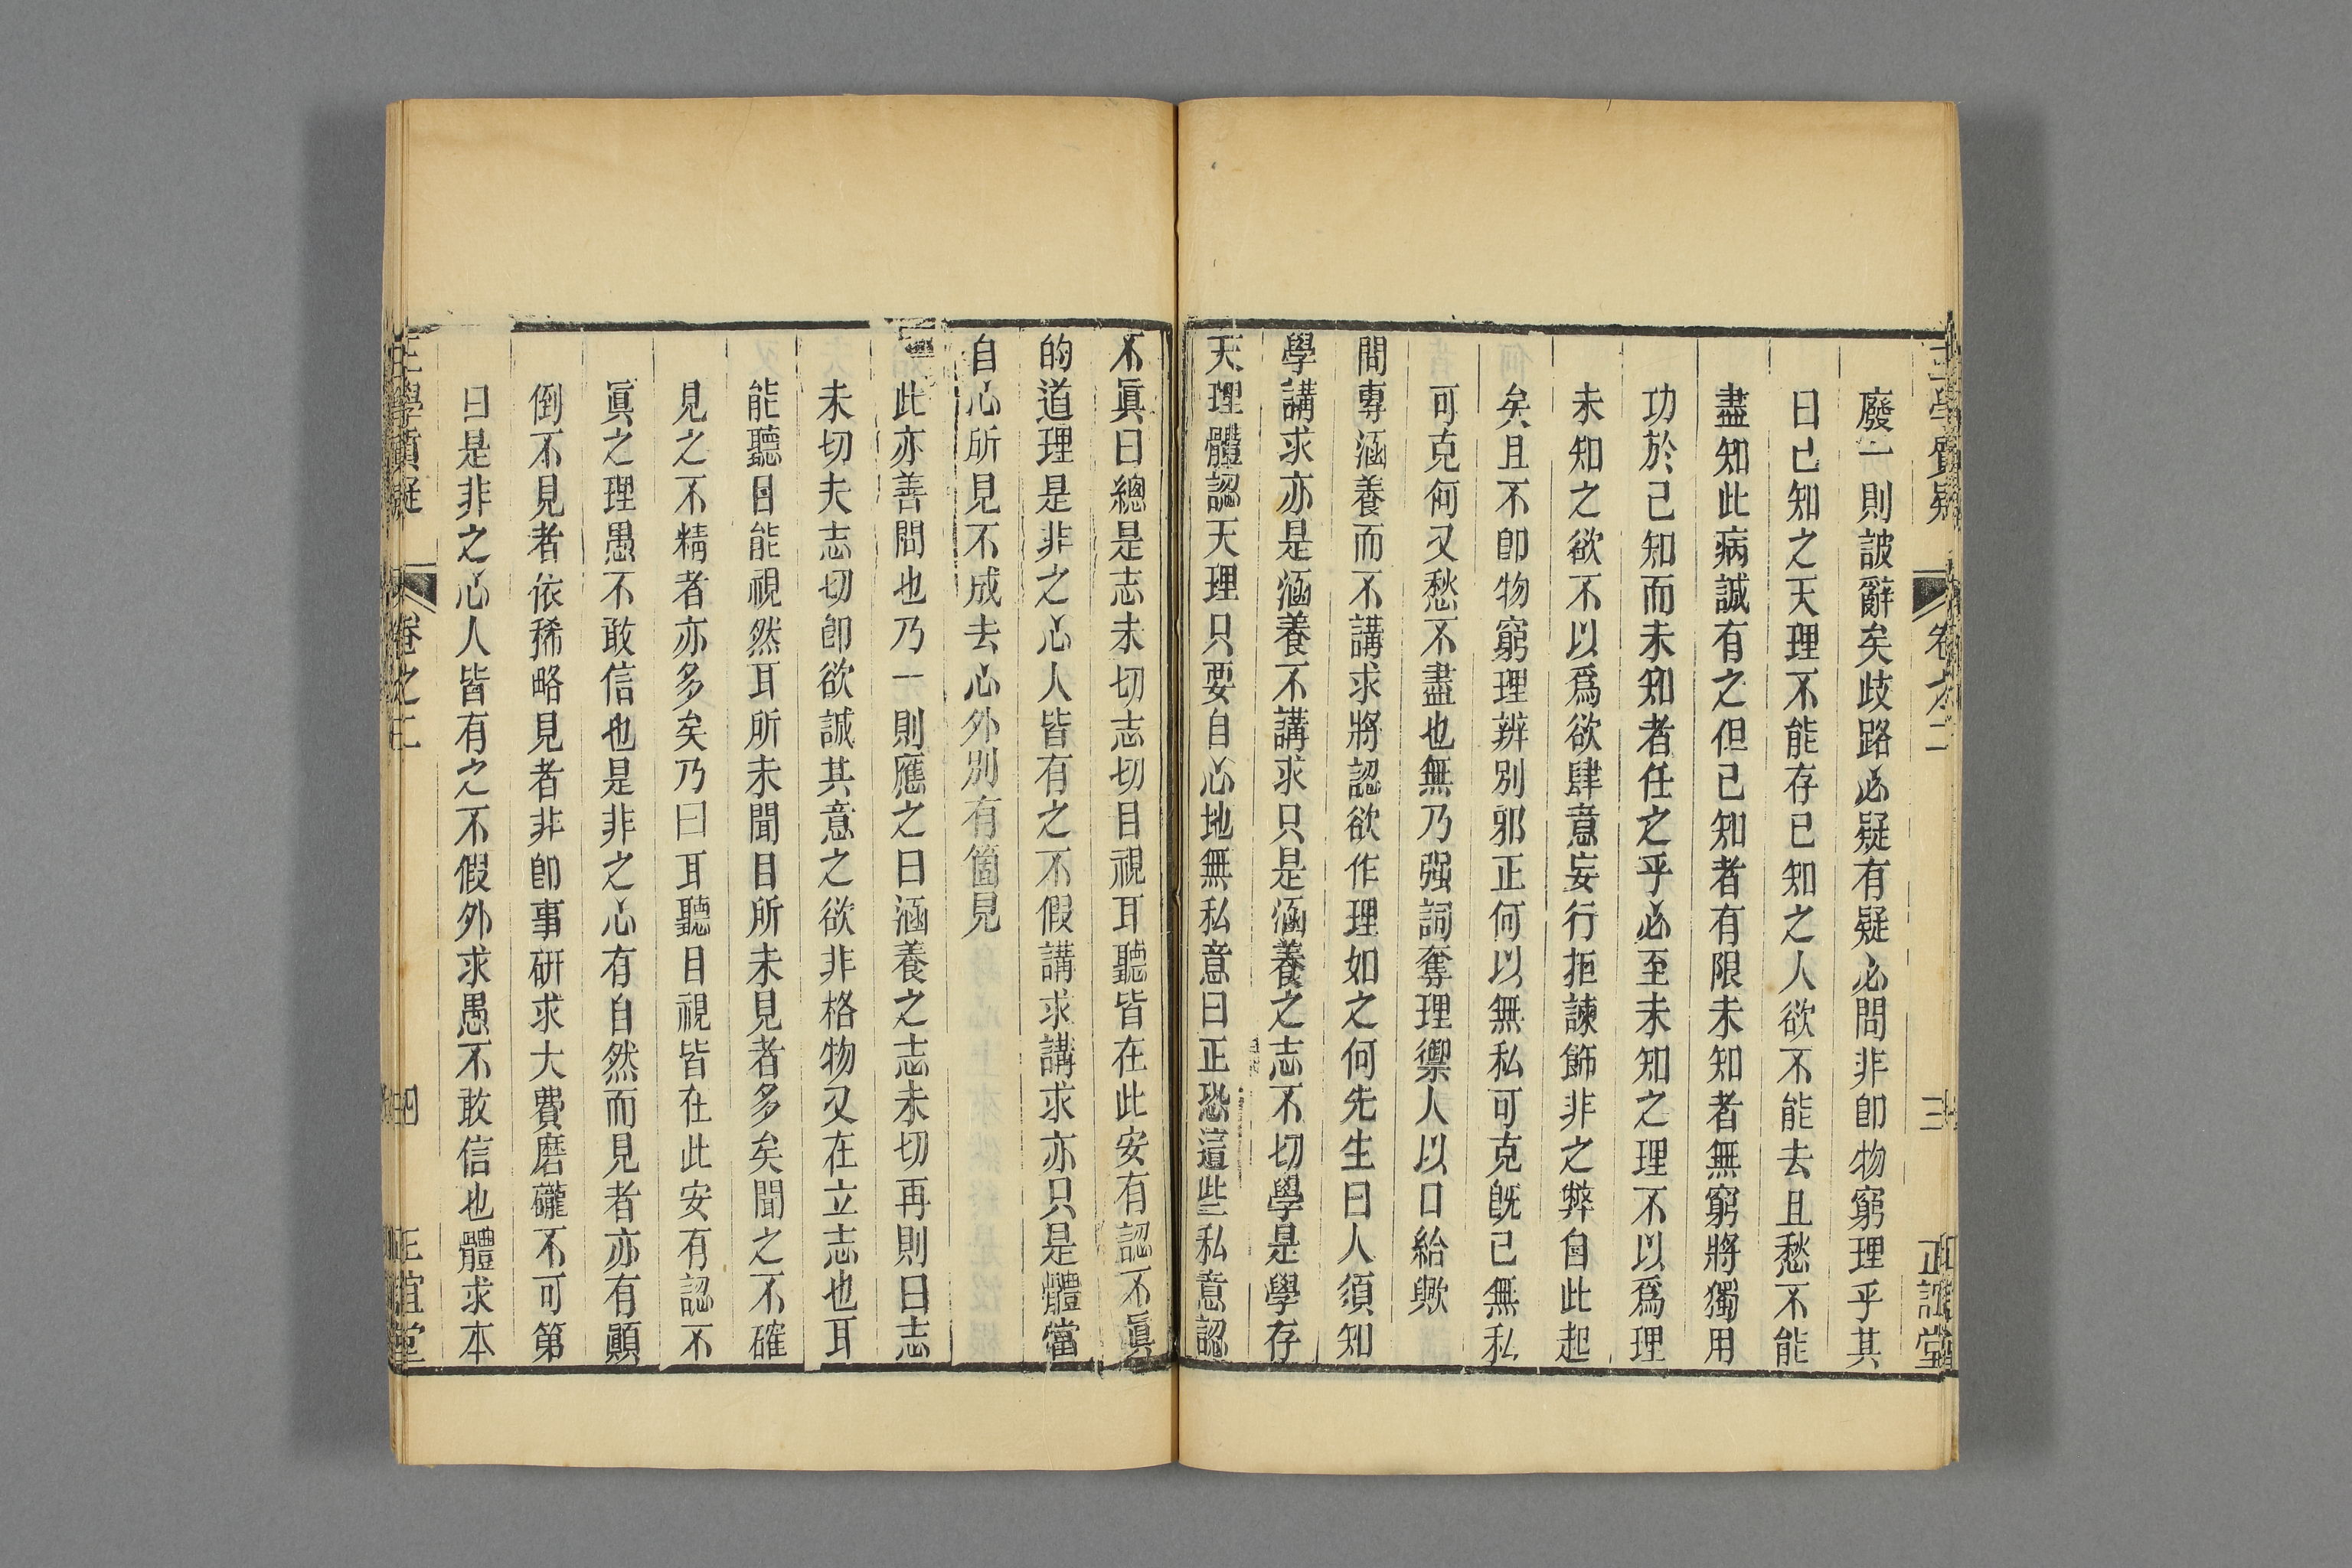 王學質疑 卷之二 三 正誼堂
廢一則詖辭矣歧路必疑有疑必問非卽物窮理乎其
曰已知之天理不能存已知之人欲不能去且愁不能
盡知此病誠有之但已知者有限未知者無窮將獨用
功於已知而未知者任之乎必至未知之理不以爲理
未知之欲不以爲欲肆意妄行拒諫飾非之弊自此起
矣且不卽物窮理辨別邪正何以無私可克旣已無私
可克何又愁不盡也無乃强詞奪理禦人以口給歟
問專涵養而不講求將認欲作理如之何先生曰人須知
學講求亦是涵養不講求只是涵養之志不切學是學存
天理體認天理只要自心地無私意曰正恐這些私意認
不眞曰總是志未切志切目視耳聽皆在此安有認不眞
的道理是非之心人皆有之不假講求講求亦只是體當
自心所見不成去心外別有箇見
此亦善問也乃一則應之曰涵養之志未切再則曰志
未切夫志切卽欲誠其意之欲非格物又在立志也耳
能聽目能視然耳所未聞目所未見者多矣聞之不確
見之不精者亦多矣乃曰耳聽目視皆在此安有認不
眞之理愚不敢信也是非之心有自然而見者亦有顚
倒不見者依稀略見者非卽事硏求大費磨礲不可第
曰是非之心人皆有之不假外求愚不敢信也體求本
王學質疑 卷之二 四 正誼堂